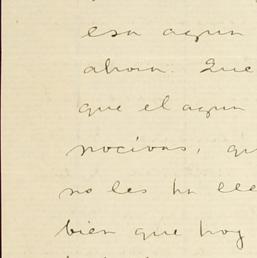 esa agua
ahora. Que
que el agua
nocivas, qu
no les ha lle
bien que hoy